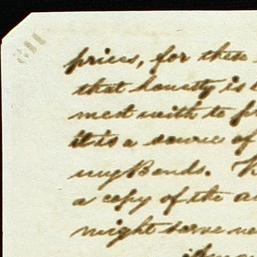 prices, for these
that honesty is
met with to
it is a source of
my Bonds.
a copy of the
might serve